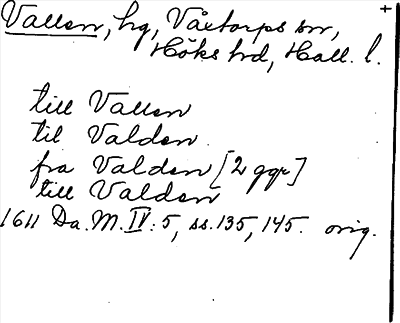 Vallen, hg, Våxtorps sn, +
Höks hd, Hall. l.
till Vallen
til Valden
fra Valden [2 ggr]
till Valden
1611 Da. M. IV: 5, ss. 135, 145. orig.